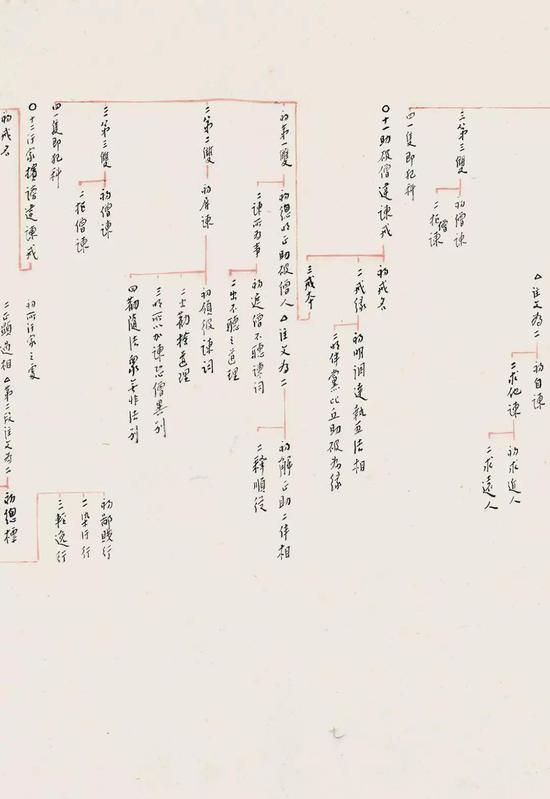 △注文為二
初自諫
二求他諫
初求近人
二求遠人
三第三雙
初僧諫
二拒僧諫
四一隻即犯科
○十一助破僧違諫戒
初戒名
二戒緣
初明調達執五法相
二明伴黨比丘助破為緣
三戒本
初第一雙
初總明正助破僧人△注文為二
初解正助二伴相
二釋順從
二諫所為事
初遮僧不聽諫詞
二出不聽之道理
二第二雙
初屏諫
初領彼諫詞
二士勸捨道理
三明所以如諫恐僧異別
四勸隨法眾无非法別
三第三雙
初僧諫
二拒諫
四一隻即犯科
○十二汙家擯謗違諫戒
初所汙家之處
初鄙賤行
二染汙行
三輕逸行
初戒名
二正顯過相△第二段注文為二
初總標
七